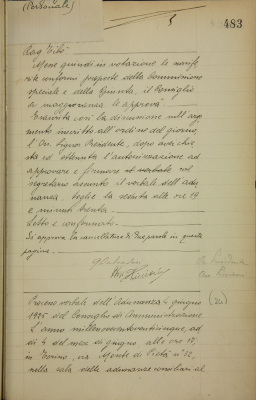 (Personale)
483
Rag. Tibò
Messe quindi in votazione le conformi proposte della Commissione
speciale e della Giunta, il Consiglio
a maggioranza le approva.
Esaurita così la discussione sull'argomento
inscritto all'ordine del giorno,
l'On. Signor Presidente, dopo aver chiesta
ed ottenuta l'autorizzazione ad
approvare e firmare il verbale col
segretario assunto il verbale dell'adunanza,
toglie la seduta alle ore 19
e minuti trenta.
Letto e confermato.
Si approva la cancellatura di due parole in questa
pagina.
Processo verbale dell'Adunanza 4 giugno (2a)
1925 del Consiglio di Amministrazione
L'anno millenovecentoventicinque, addì
4 del mese di giugno alle ore 15,
in Torino, via Monte di Pietà n° 32,
nella sala delle adunanze consiliari al